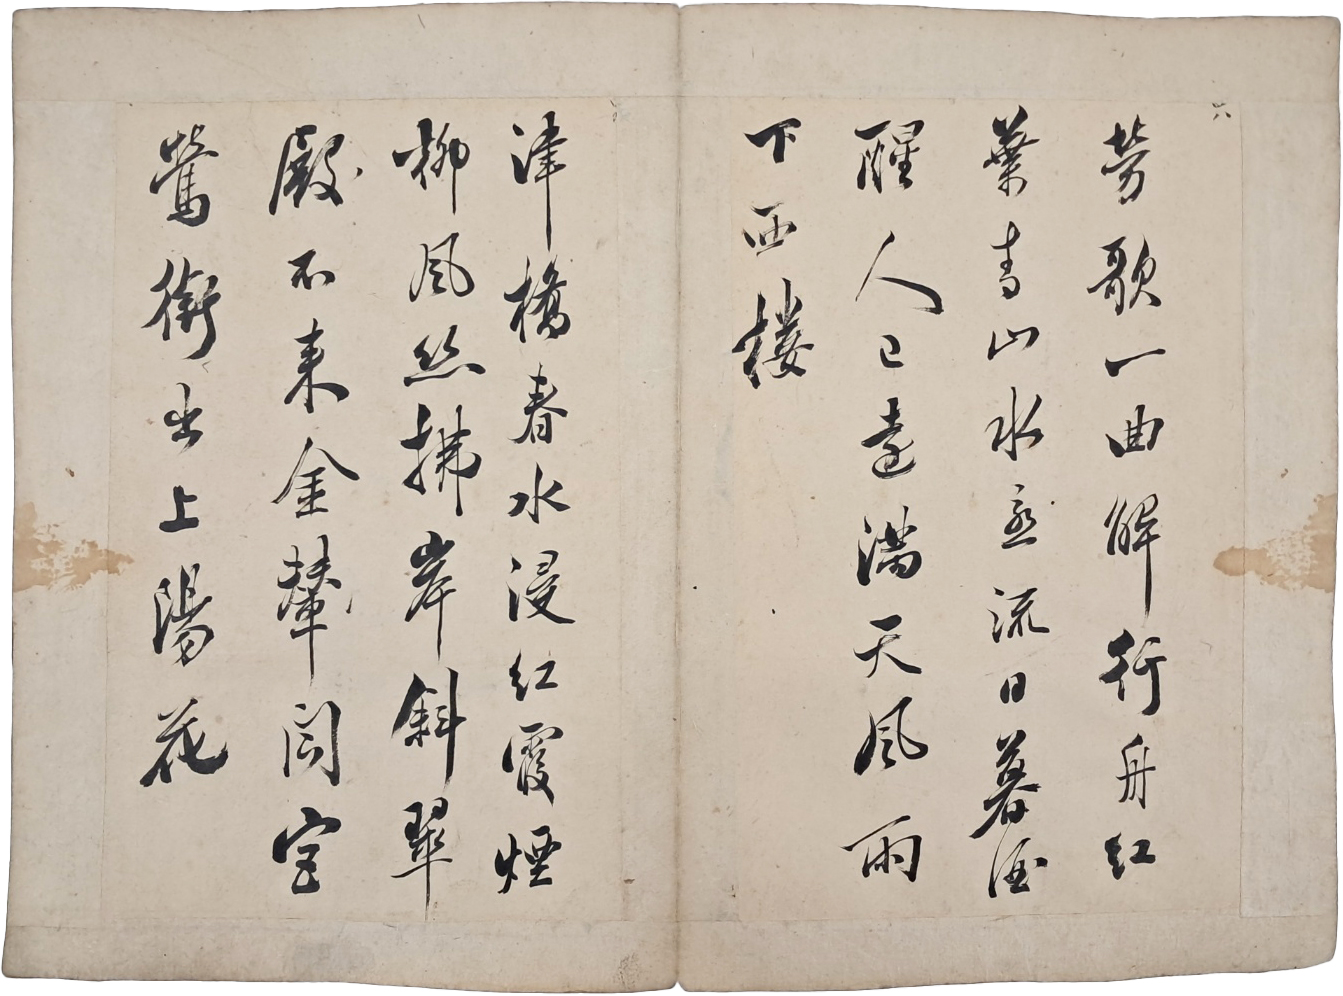 六
勞歌一曲解行舟紅
葉青山水急流日暮酒
醒人已遠滿天風雨
下西樓
津橋春水浸紅霞煙
柳風絲拂岸斜翠
殿不來金輦閉宮
鶯銜出上陽花